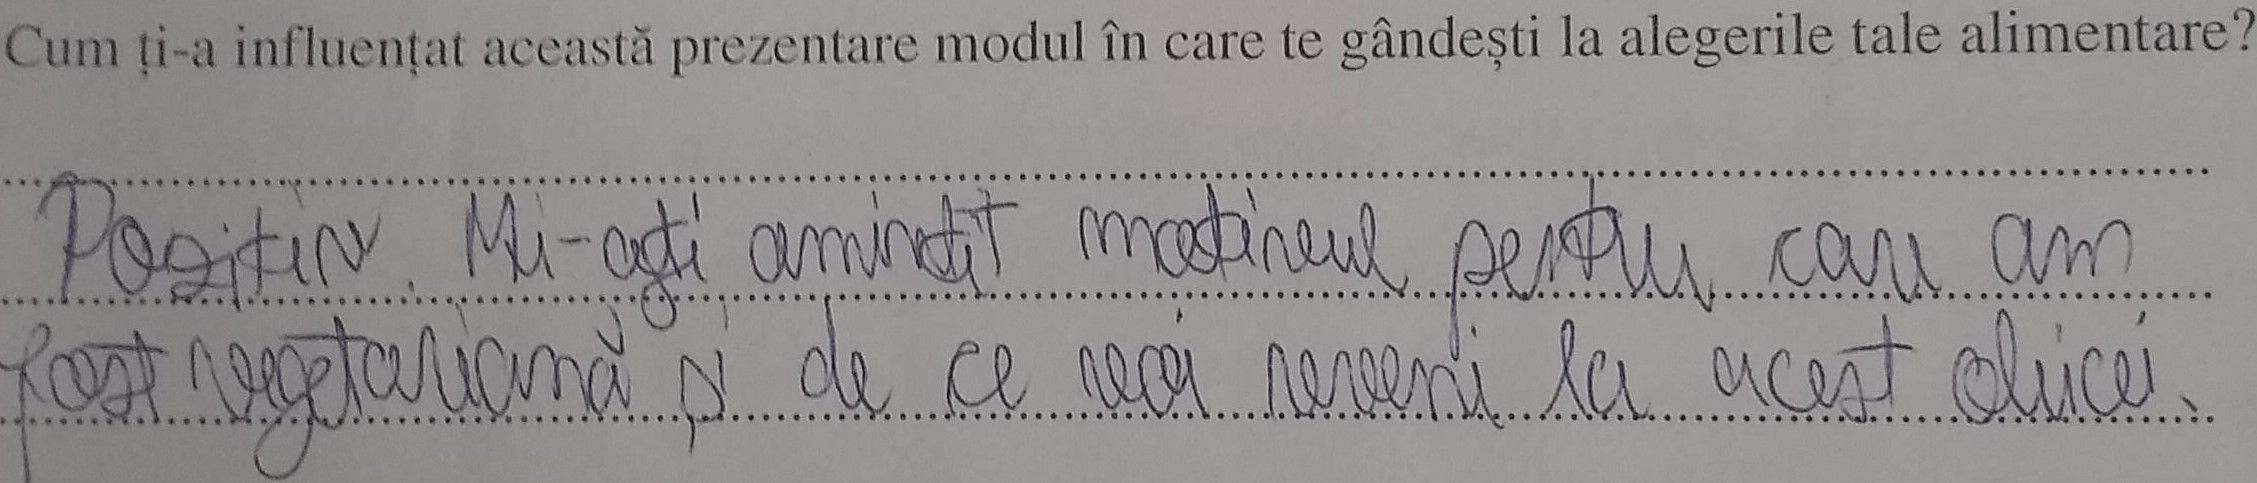 Cum ți-a influențat această prezentare modul în care te gândești la alegerile tale alimentare?
Pozitiv. Mi-ați amintit motivul pentru care am
fost vegetariană și de ce voi reveni la acest obicei.